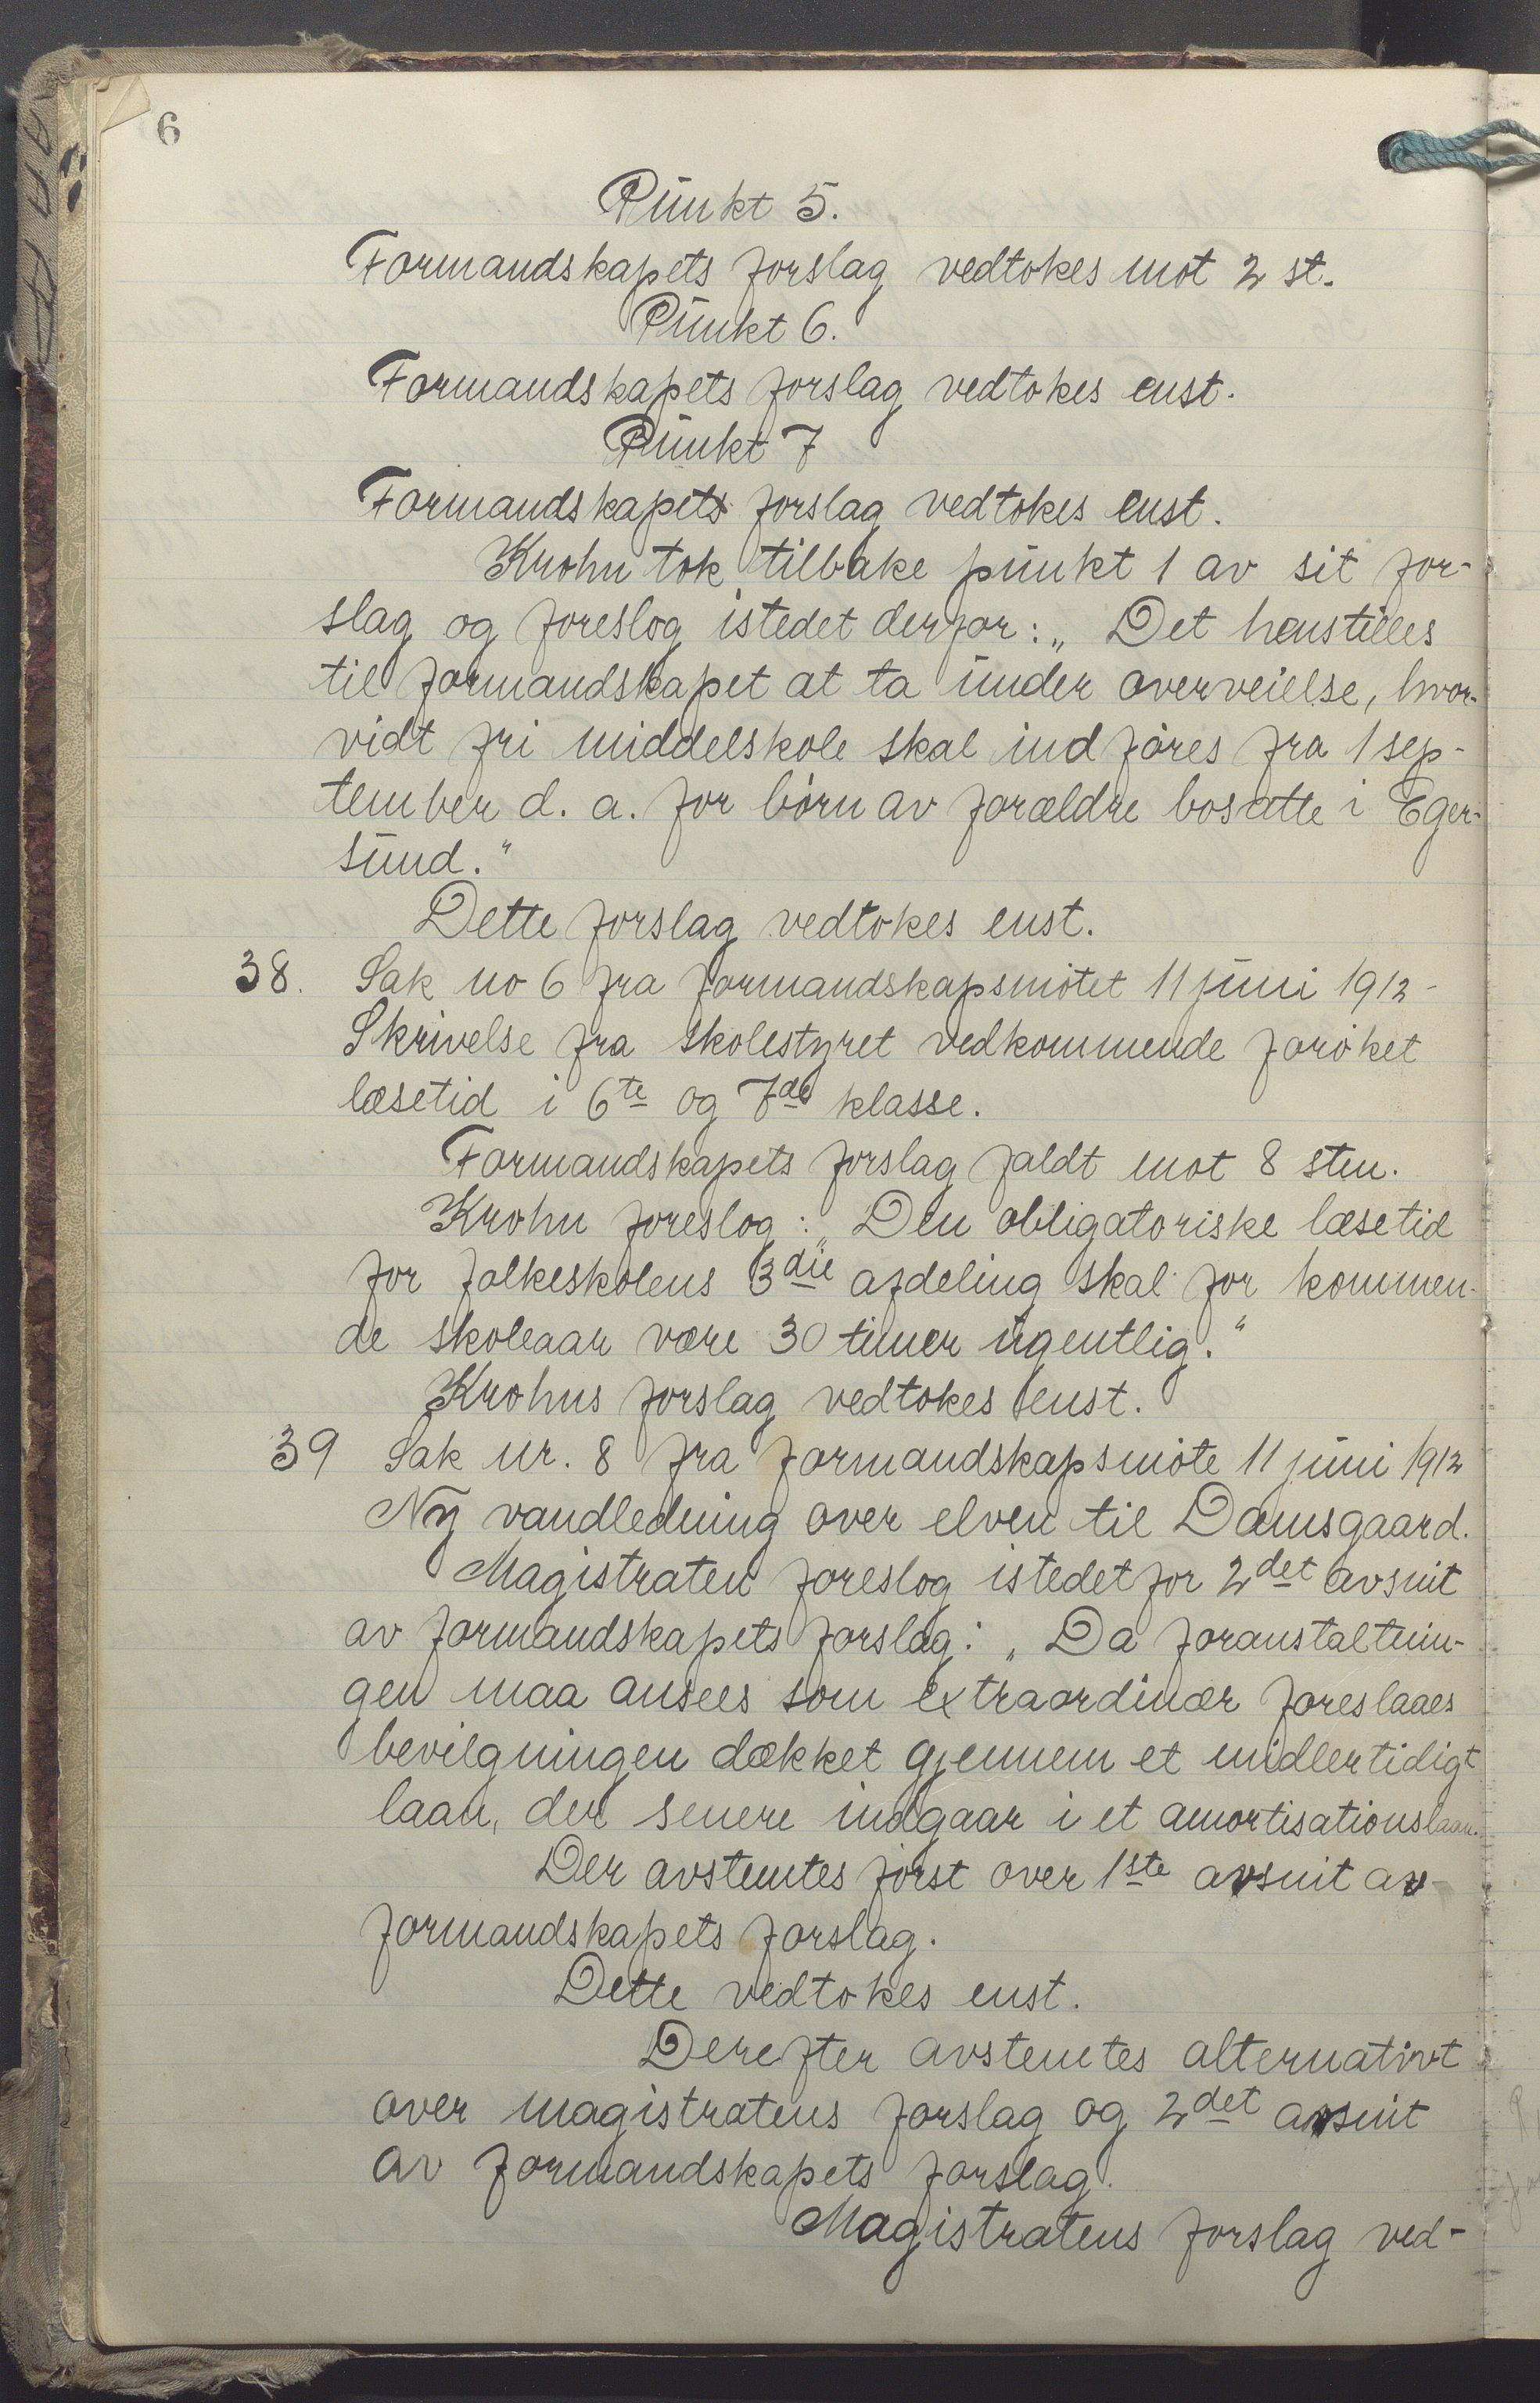 6
Punkt 5.
Formandskapets forslag vedtokes mot 2 st.
Punkt 6.
Formandskapets forslag vedtokes enst.
Punkt 7
Formandskapets forslag vedtokes enst.
Krohn tok tilbake punkt 1 av sit for-
slag og foreslog istedet derfor: „Det henstilles
til formandskapet at ta under overveielse, hvor-
vidt fri middelskole skal indføres fra 1 sep-
tember d. a. for børn av forældre bosatte i Eger-
sund."
Dette forslag vedtokes enst.
38. Sak no 6 fra formandskapsmøtet 11 juni 1912 -
Skrivelse fra skolestyret vedkommende forøket
læsetid i 6te og 7de klasse.
Formandskapets forslag faldt mot 8 stm.
Krohn foreslog: „Den obligatoriske læsetid
for folkeskolens 3die afdeling skal for kommen-
de skoleaar være 30 timer ugentlig."
Krohns forslag vedtokes enst.
39 Sak nr. 8 fra formandskapsmøte 11 juni 1912
Ny vandledning over elven til Damsgaard.
Magistraten foreslog istedet for 2det avsnit
av formandskapets forslag: „Da foranstaltnin-
gen maa ansees som extraordinær foreslaaes
bevilgningen dækket gjennem et midlertidigt
laan, der senere indgaar i et amortisationslaan.
Der avstemtes først over 1ste avsnit av
formandskapets forslag.
Dette vedtokes enst.
Derefter avstemtes alternativt
over magistratens forslag og 2det avsnit
av formandskapets forslag.
Magistratens forslag ved-